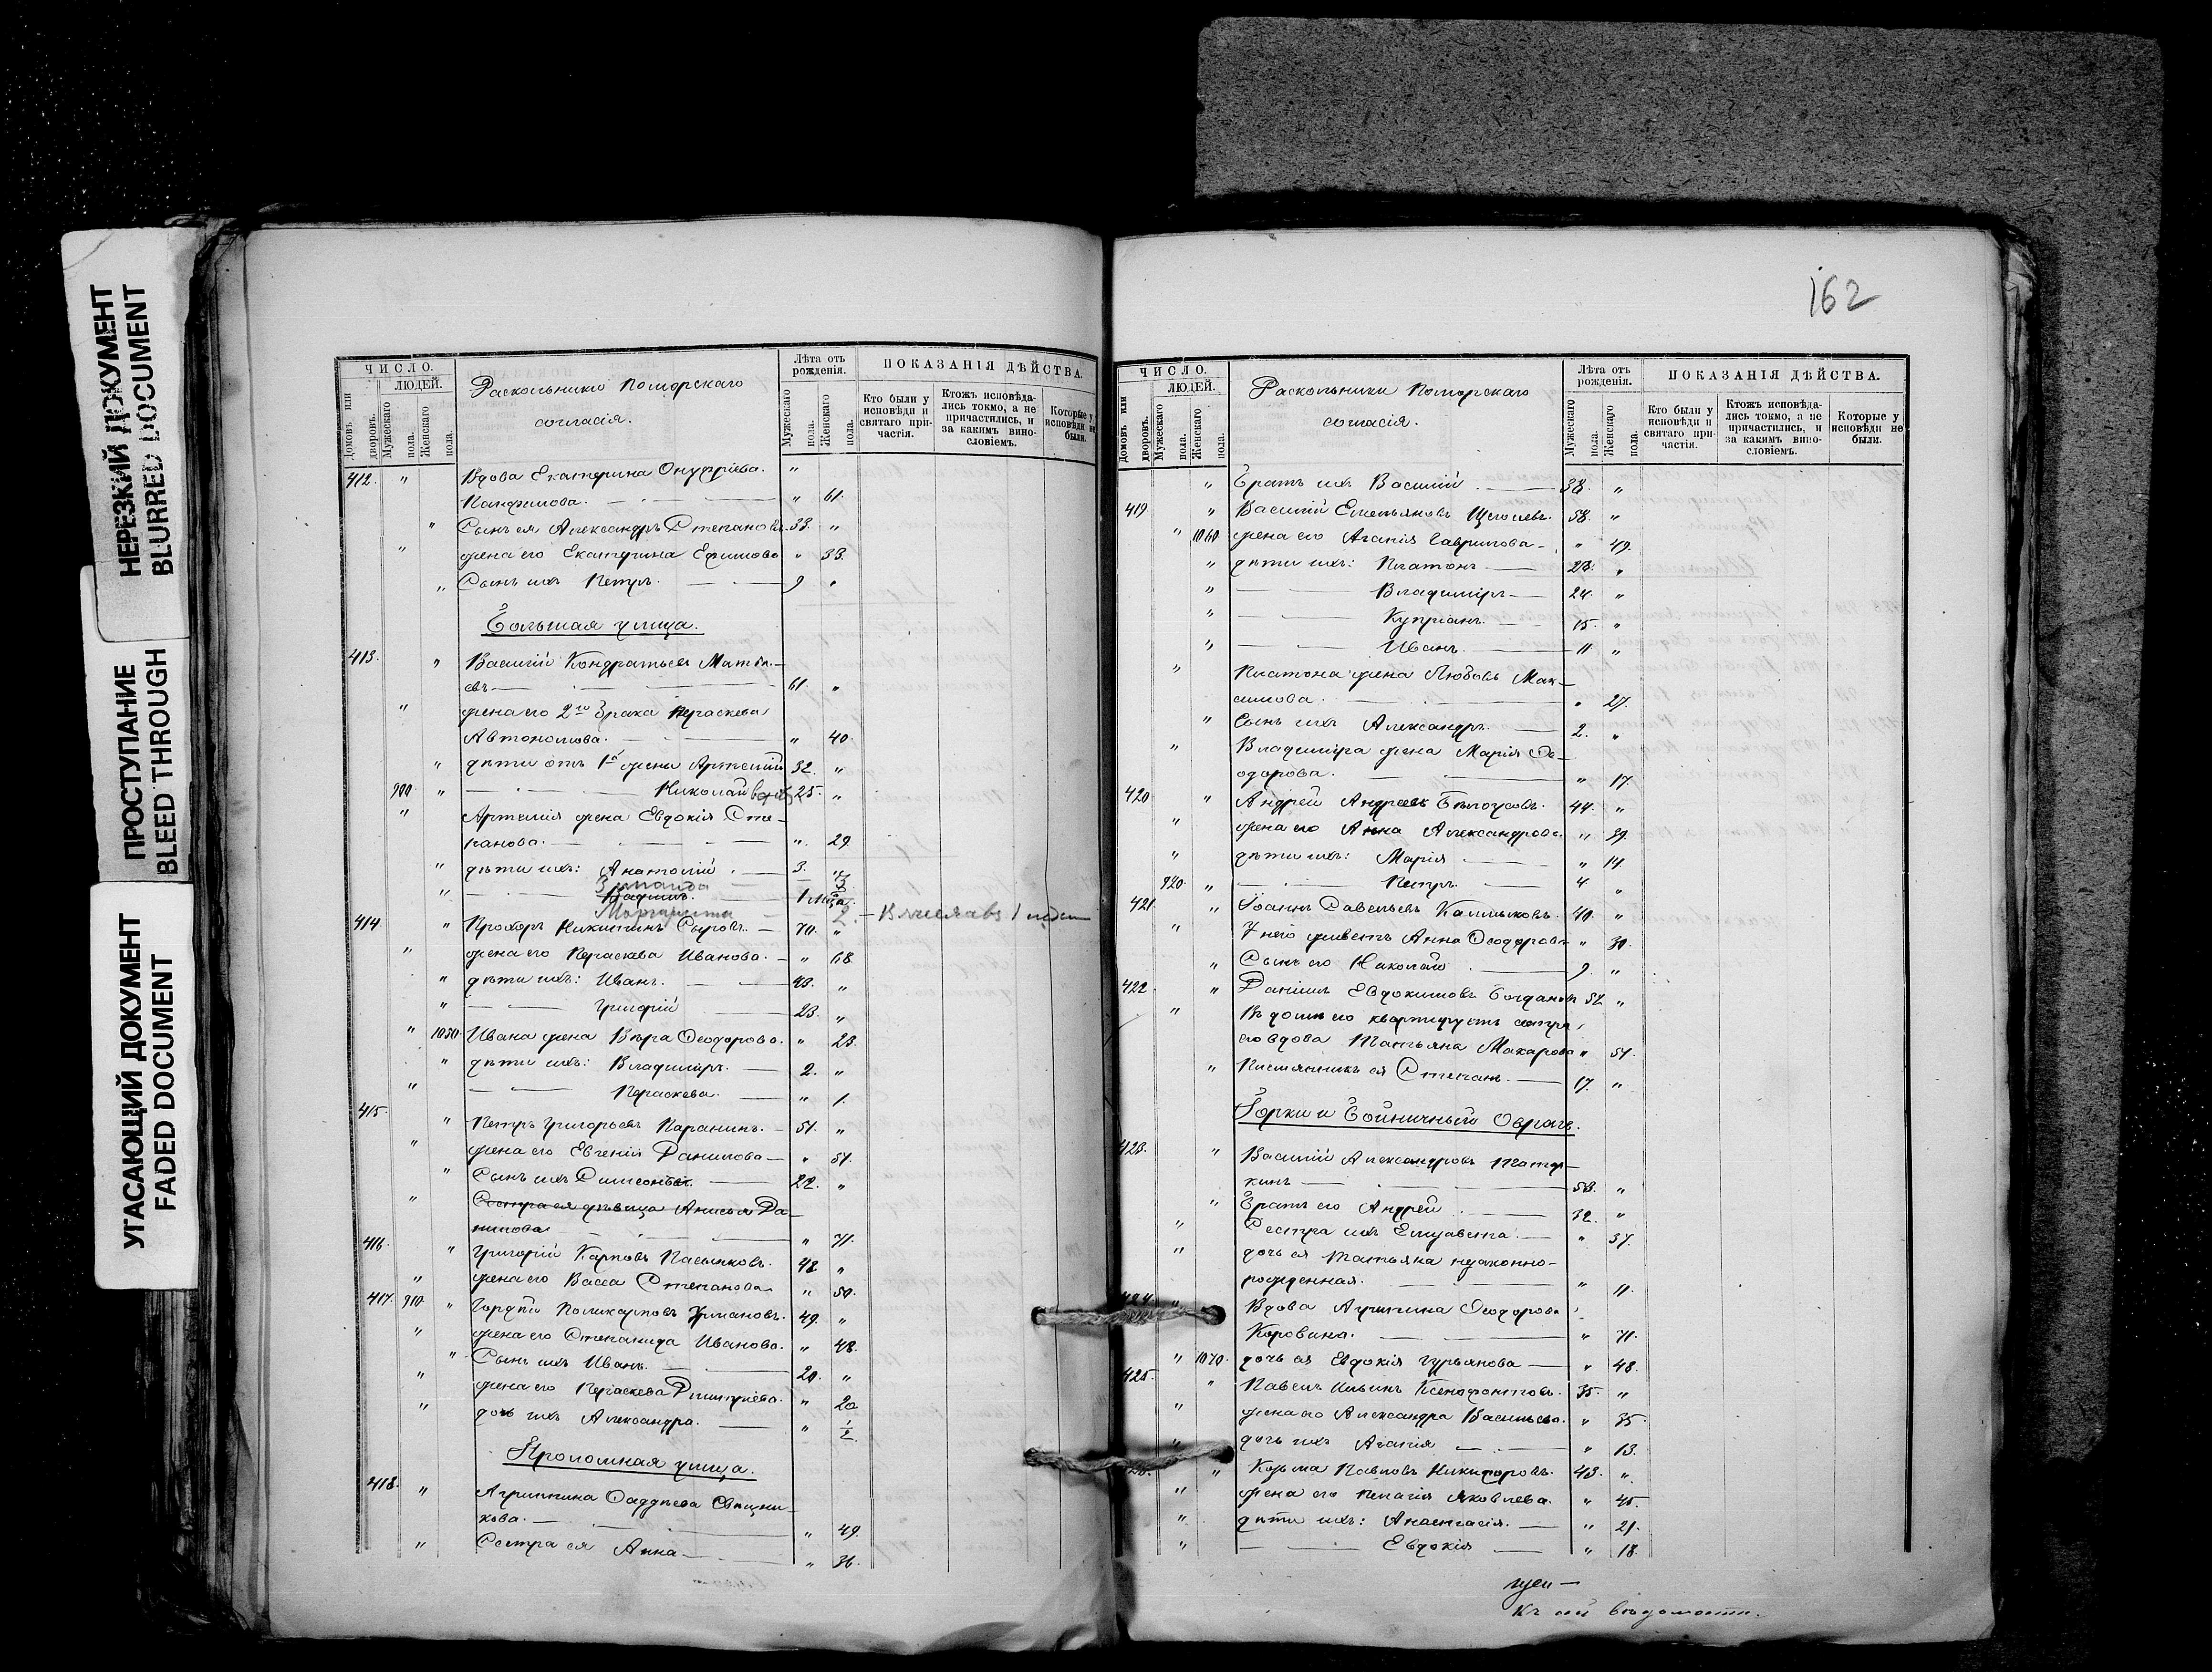 НЕРЕЗКИЙ ДОКУМЕНТ
BLURRED DOCUMENT
ПРОСТУПАНИЕ
BLEED THROUGH
УГАСАЮЩИЙ ДОКУМЕНТ
FADED DOCUMENT
ЧИСЛО.
ЛЮДЕЙ.
Домовъ или дворовъ.
Мужескаго пола.
Женскаго пола.
Раскольники Поморскаго
согласія.
Лѣта отъ рожденія.
Мужескаго пола.
Женскаго пола.
ПОКАЗАНІЯ ДѢЙСТВА.
Кто были у исповѣди и святаго при-частія.
Ктожъ исповѣда-лись токмо, а не причастились, и за какимъ вино-словіемъ.
Которые у исповѣди не были.
412. " Вдова Екатерина Онуфріева "
Панфилова. " 61.
" Сынъ ея Александръ Степановъ. 33. "
" жена его Екатерина Ефимова " 33.
" Сынъ ихъ Петръ. 9 "
Большая улица.
413. " Василій Кондратьевъ Матвѣ-
евъ 61. "
" жена его 2го брака Параскева
Автономова. " 40.
" дѣти отъ 1й жены Артемій 32. "
900 " Николай 25. "
" Артемія жена Евдокія Сте-
панова. " 29
" дѣти ихъ: Анатолій 3. "
Зинаида
"
Маргарита
414. " Прохоръ Никитинъ Сыровъ. 70. "
" жена его Параскева Иванова. " 68.
" дѣти ихъ: Иванъ. "
" Григорій 23. "
" 1050. Ивана жена Вѣра Ѳеодорова. " 23.
" дѣти ихъ: Владиміръ. 2. "
" Параскева. " 1.
415. " Петръ Григорьевъ Каранинъ. 51. "
" жена его Евгенія Данилова " 51.
" Сынъ ихъ Симеонъ 22. "
" Сестра ея дѣвица Анисья Да-
нилова " 71.
416. " Григорій Карповъ Пасынковъ. 48 "
" жена его Васса Степанова " 50.
417. 910. " Гордѣй Поликарповъ 49. "
" жена его Степанида Иванова. " 48.
" Сынъ ихъ Иванъ. 20. "
" жена его Параскева Димитріева. " 20
" дочь ихъ Александра. " 1/2
Проломная улица.
418. " Агрипина Ѳаддѣева Свѣчни-
кова. " 49.
" Сестра ея Анна " 36.
162
ЧИСЛО.
ЛЮДЕЙ.
Домовъ или дворовъ.
Мужескаго пола.
Женскаго пола.
Раскольники Поморскаго
согласія.
Лѣта отъ рожденія.
Мужескаго пола.
Женскаго пола.
ПОКАЗАНІЯ ДѢЙСТВА.
Кто были у исповѣди и святаго при-частія.
Ктожъ исповѣда-лись токмо, а не причастились, и за какимъ вино-словіемъ.
Которые у исповѣди не были.
" Братъ ихъ Василій 38. "
419 " Василій Емельяновъ Щеголевъ. 58. "
" 1060. жена его Агапія Гаврилова " 49.
" дѣти ихъ: Платонъ 28. "
" Владиміръ 24. "
" Купріанъ. 15. "
" Иванъ. 11. "
" Платона жена Любовь Мак-
симова. " 27.
" Сынъ ихъ Александръ 2. "
" Владиміра жена Марія Ѳе-
одорова. " 17.
420 " Андрей Андреевъ Бѣлоусовъ. 44. "
" жена его Анна Александрова. " 39.
" дѣти ихъ: Марія " 14.
920. " Петръ. 4 "
421. " Іоаннъ Савельевъ Калмыковъ. 40. "
" У него живетъ Анна Ѳеодорова " 30.
" Сынъ его Николай 9. "
422 " Даніилъ Евдокимовъ Богдановъ 52 "
" Въ домѣ его квартируетъ сестра
его вдова Татьяна Макарова " 51.
" Племянникъ ея Степанъ. 17. "
Горки и Бойничный Оврагъ.
423. " Василій Александровъ
кинъ 58. "
" Братъ его Андрей 32. "
" Сестра ихъ Елизавета. " 37.
" дочь ея Татьяна незаконно-
рожденная. " 11.
424. " Вдова Агрипина Ѳеодорова
Коровина. " 71.
" 1070. дочь ея Евдокія Гурьянова " 48.
425. " Павелъ Ильинъ Ксенофонтовъ. 35. "
" жена его Александра Васильева. " 35.
" дочь ихъ Агапія " 13.
" Козьма Павловъ Никифоровъ. 43. "
" жена его Пелагія Яковлева. " 45.
" дѣти ихъ: Анастасія. " 21.
" Евдокія " 18.
Къ сей вѣдомости.